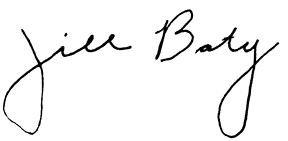 Jill Baty